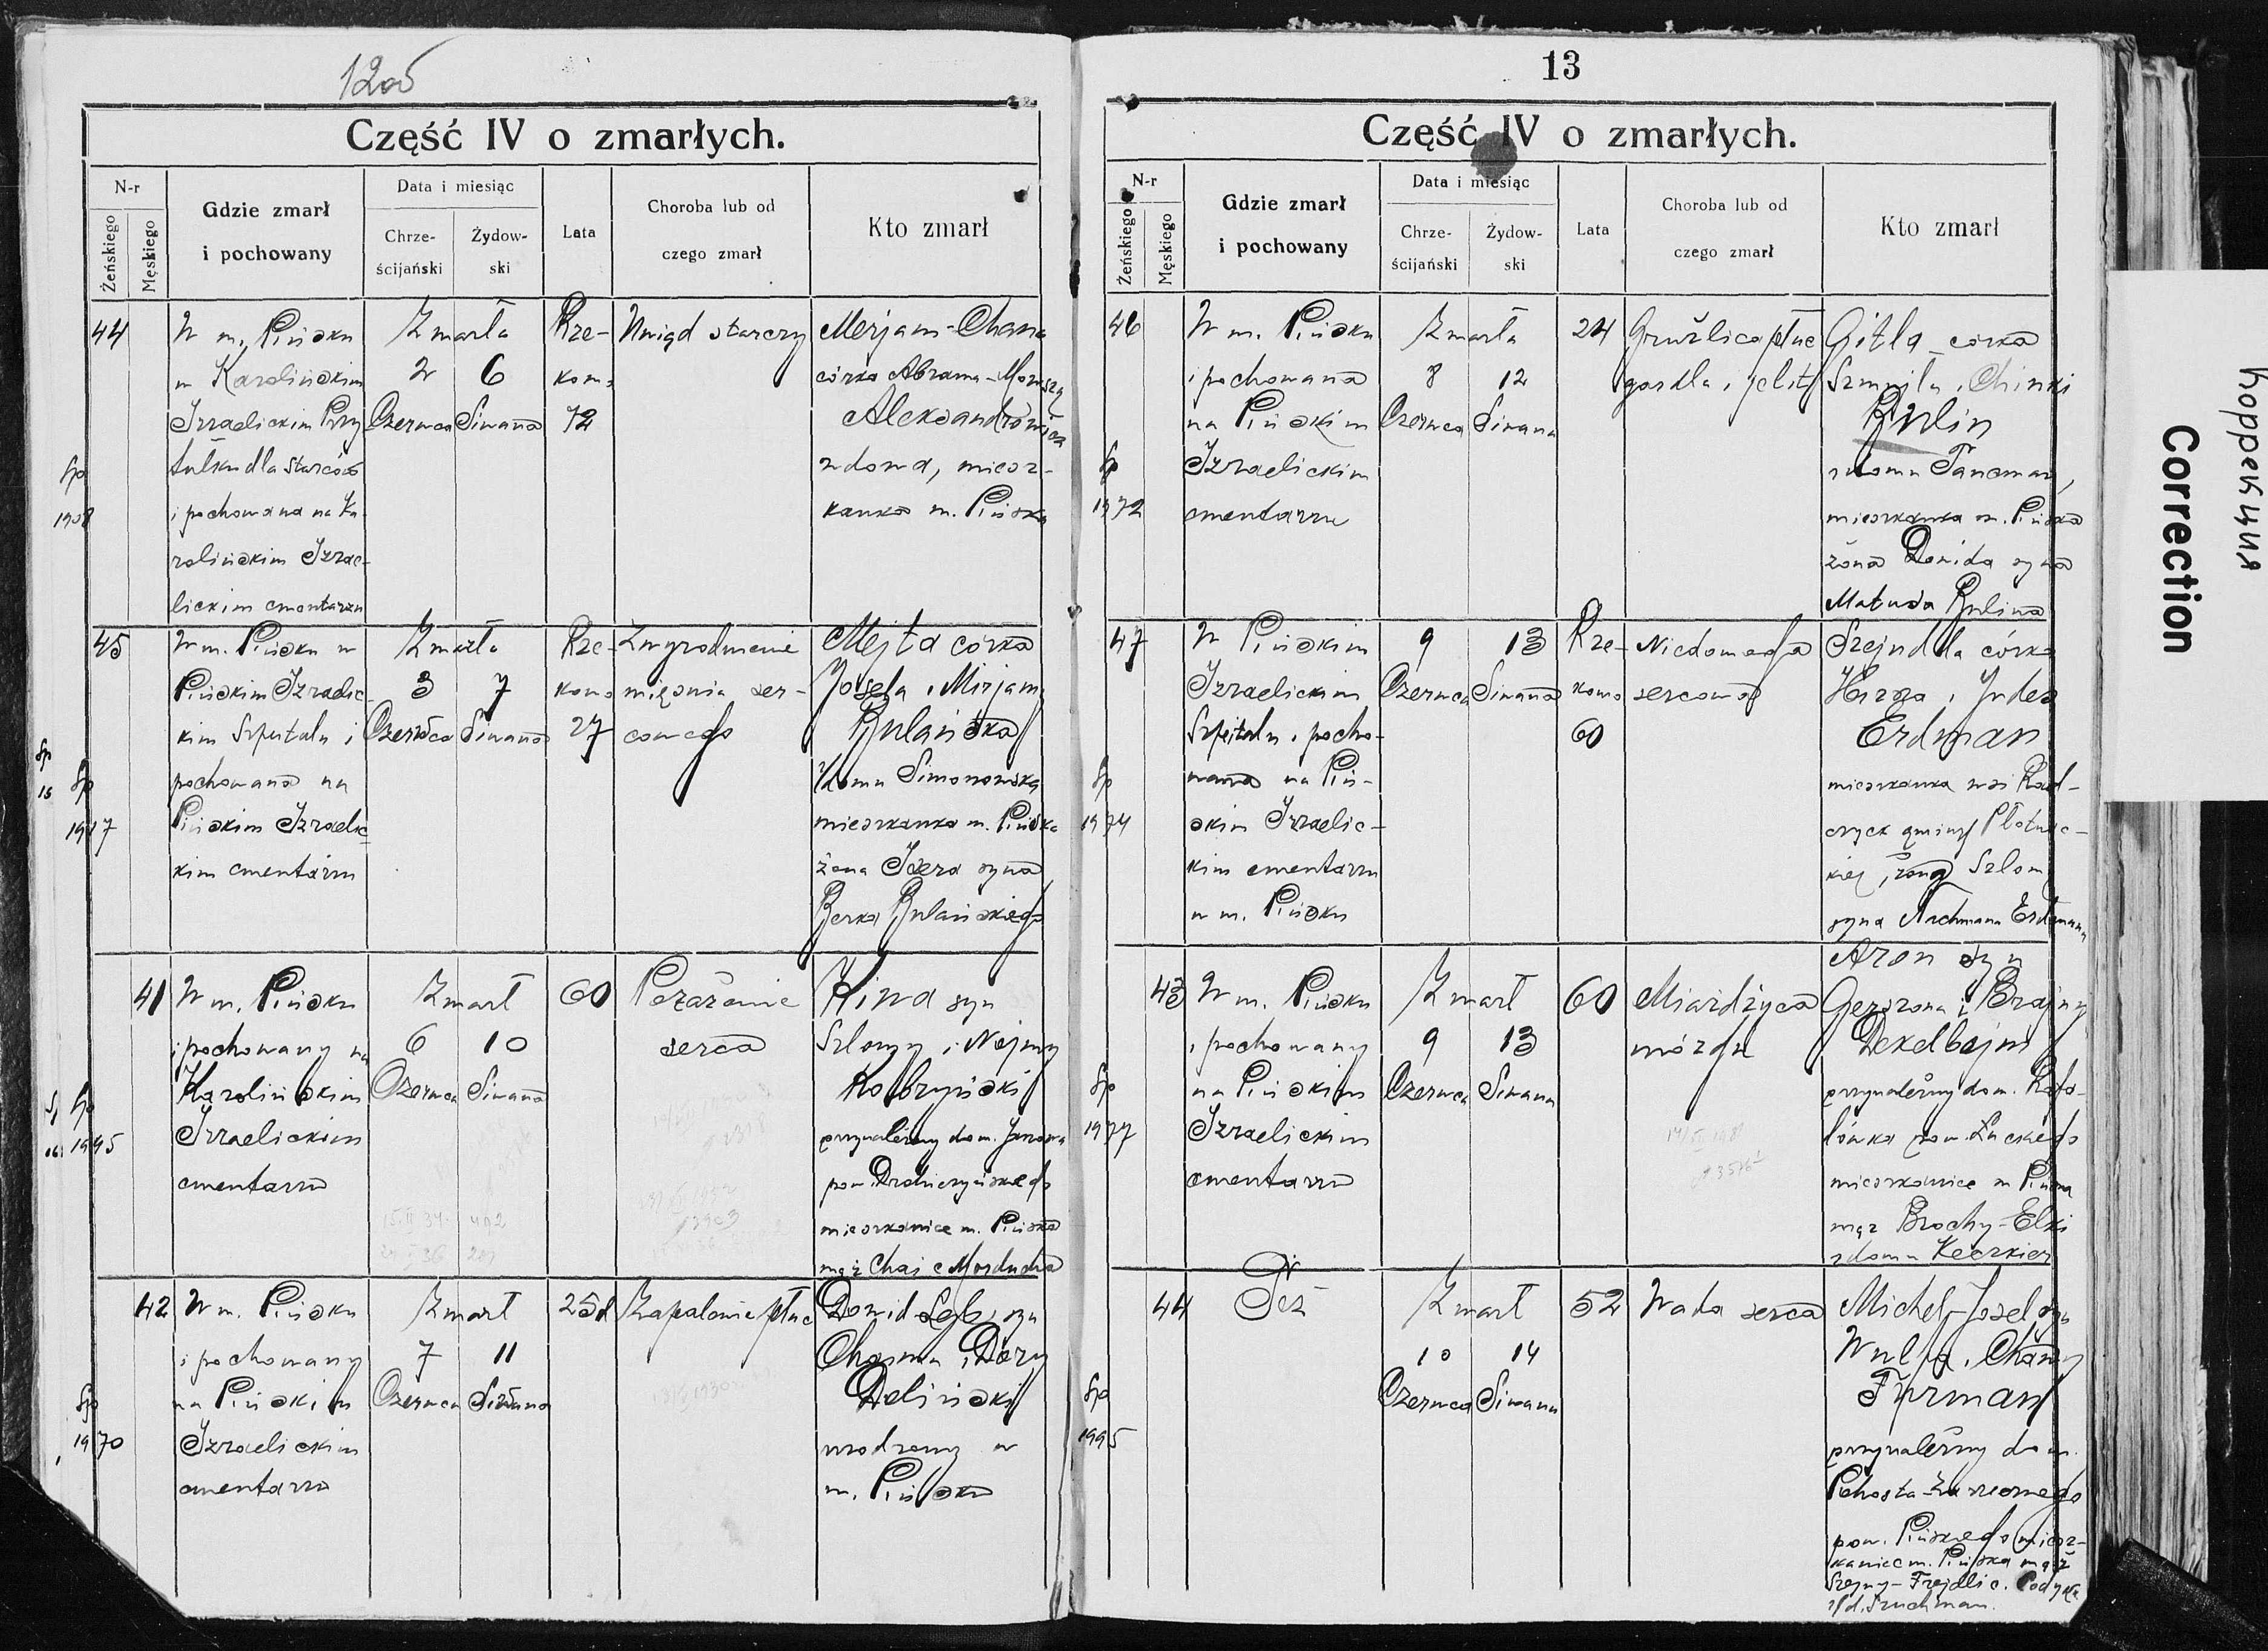 12об
Część IV o zmarłych.
N-r
Żeńskiego
Męskiego
Gdzie zmarł
i pochowany
Data i miesiąc
Chrze-
ścijański
Żydow-
ski
Lata
Choroba lub od
czego zmarł
Kto zmarł
44
W m. Pińsku
w Karolińskim
Izraelickim Przy
tułku dla starców
i pochowana na Ka
rolińskim Izrae-
lickim cmentarzu
Zmarła
2 6
Czerwca Siwana
Rze-
komo
72
Uwiąd starczy
Merjam-Chana
córka Abrama-Mowszy
Aleksandrowicz
wdowa, miesz-
kanka m. Pińska
1908
45
W m. Pińsku w
Pińskim Izraelic
kim Szpitalu i
pochowana na
Pińskim Izraelic
kim cmentarzu
Zmarła
3 7
Czerwca Siwana
Rze-
komo
27
Zwyrodnienie
mięśnia ser-
cowego
Mejta córka
Josela i Mirjamy
Bulańska
z domu Simonowska
mieszkanka m. Pińska
żona Icera syna
Berka Bulańskiego
1917
41
W m. Pińsku
i pochowany na
Karolińskim
Izraelickim
cmentarzu
Zmarł
6 10
Czerwca Siwana
60
Porażenie
serca
Hina syn
Szlomy i Nojmy
Kobryński
przynależny do m. Janowa
pow. Drohiczyńskiego
mieszkaniec m. Pińska
mąż Chai c Morducha
1995
42
W m. Pińsku
i pochowany
na Pińskim
Izraelickim
cmentarzu
Zmarł
7 11
Czerwca Siwana
25d
Zapalenie płuc
Dawid Lejb, syn
Chaima i Dory
Doliński
urodzony w
m. Pińsku
1970
13
Część IV o zmarłych.
N-r
Żeńskiego
Męskiego
Gdzie zmarł
i pochowany
Data i miesiąc
Chrze-
ścijański
Żydow-
ski
Lata
Choroba lub od
czego zmarł
Kto zmarł
46
W m. Pińsku
i pochowana
na Pińskim
Izraelickim
cmentarzu
Zmarła
8 12
Czerwca Siwana
24
Gruźlica płuc
gardła i jelit
Gitla córka
Szmujla i Chinki
Rulin
z domu Tancman,
mieszkanka m. Pińska
żona Dawida syna
Matusa Rulina
1972
47
W Pińskim
Izraelickim
Szpitalu i pocho-
wana na Piń-
skim Izraelic-
kim cmentarzu
w m. Pińsku
9 13
Czerwca Siwana
Rze-
komo
60
Niedomoga
sercowa
Szejndla córka
Hersza i Judes
Erdman
mieszkanka wsi Rad-
czyck gminy Płotnic-
kiej, żona Szlomy
syna Nachmana Erdmana
1974
43
W m. Pińsku
i pochowany
na Pińskim
Izraelickim
cmentarzu
Zmarł
9 13
Czerwca Siwana
60
Miażdżyca
mózgu
Aron syn
Gerszona i Brajny
Dekelbojm
przynależny do m. Rafa-
łówka pow. Łuckiego
mieszkaniec m. Pińska
mąż Brochy-Elki
z domu Keczkier
1977
44
Też
Zmarł
10 14
Czerwca Siwana
52
Wada serca
Michel-Josel syn
Wulfa i Chany
Furman
przynależny do m.
Pohosta-Zarzecznego
pow. Pińskiego miesz-
kaniec m. Pińska mąż
Szejny-Frejdli c.
z/d. Szuchman.
1995
Correction
Коррекция